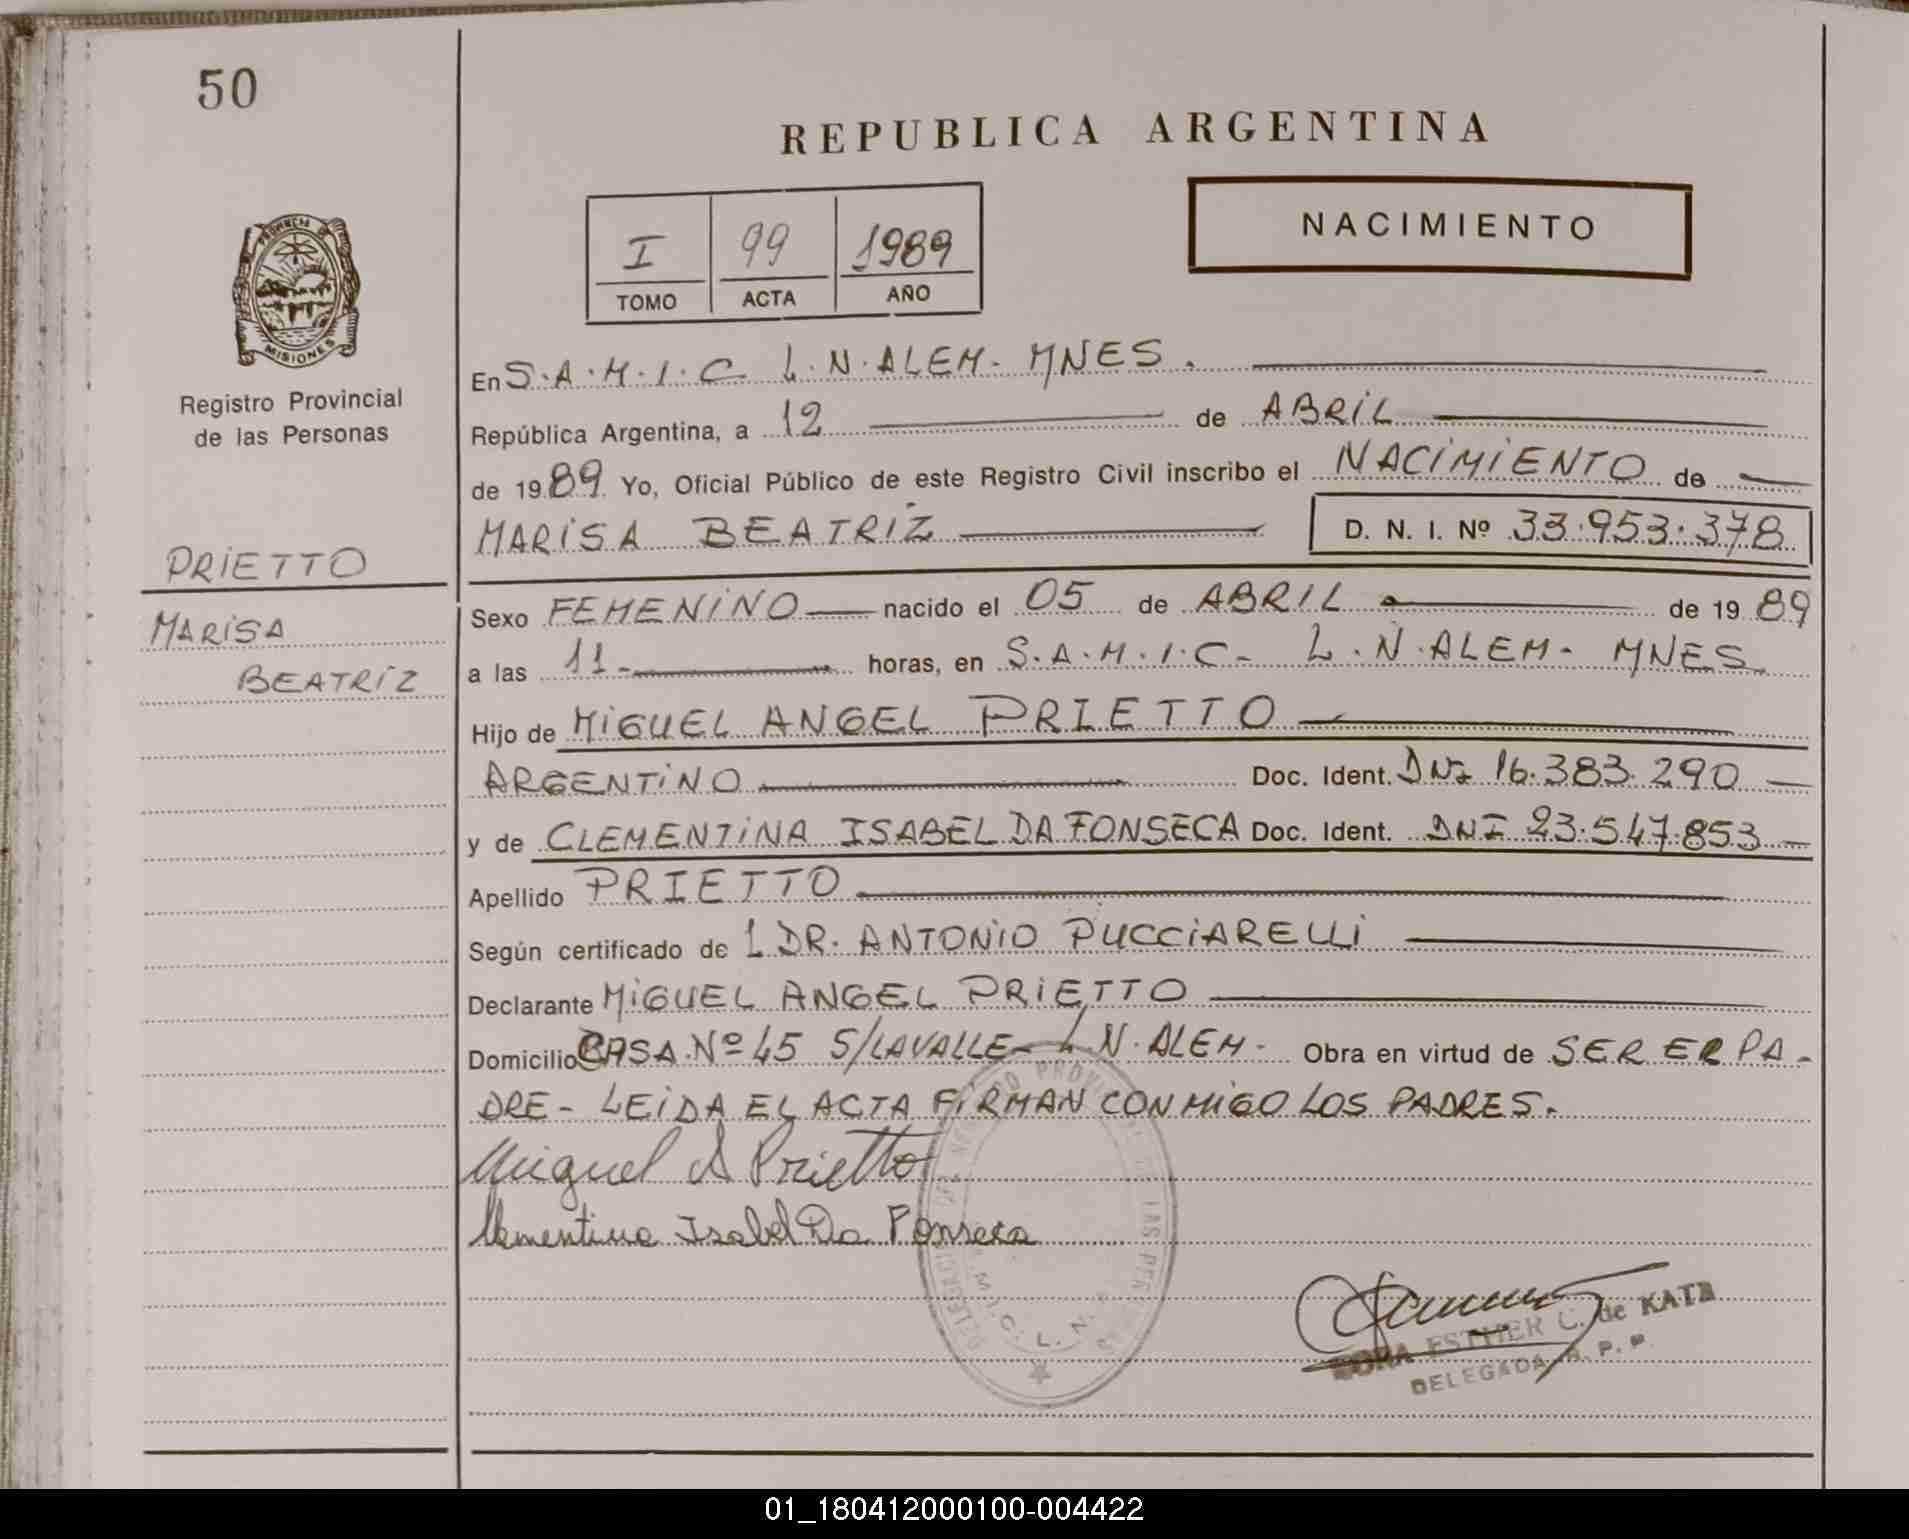 50
REPUBLICA ARGENTINA
NACIMIENTO
I 99 1989
TOMO ACTA AÑO
PROVINCIA DE
MISIONES
Registro Provincial
de las Personas
En S.A.M.I.C L.N.ALEM- MNES.
República Argentina, a 12 de ABRIL
de 1989 Yo, Oficial Público de este Registro Civil inscribo el NACIMIENTO de
MARISA BEATRIZ D. N. I. Nº 33.953.378
PRIETTO
MARISA
BEATRIZ
Sexo FEMENINO nacido el 05 de ABRIL de 1989
a las 11- horas, en S.A.M.I.C- L.N.ALEM- MNES
Hijo de MIGUEL ANGEL PRIETTO
ARGENTINO Doc. Ident. DNI 16.383.290
y de CLEMENTINA ISABEL DA FONSECA Doc. Ident. DNI 23.547.853
Apellido PRIETTO
Según certificado de DR. ANTONIO PUCCIARELLI
Declarante MIGUEL ANGEL PRIETTO
Domicilio CASA Nº 45 S/LAVALLE- L N.ALEM- Obra en virtud de SER ER PA-
DRE- LEIDA EL ACTA FIRMAN CONMIGO LOS PADRES.
Miguel A Prietto
Clementina Isabel Da Fonseca
ESTHER C. de KATZ
DELEGADA R. P. P.
01_180412000100-004422